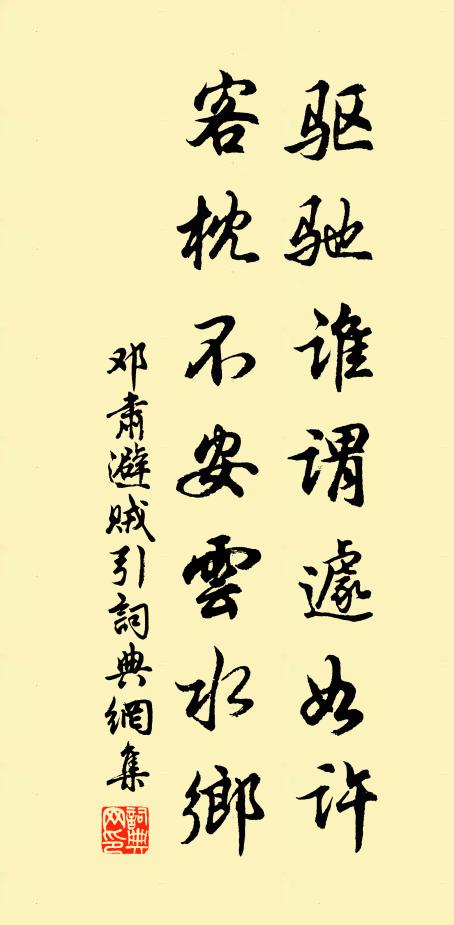 驱驰谁谓遽如许
客枕不安雲水鄉
邓肅避贼引詞典網集
詞典网印